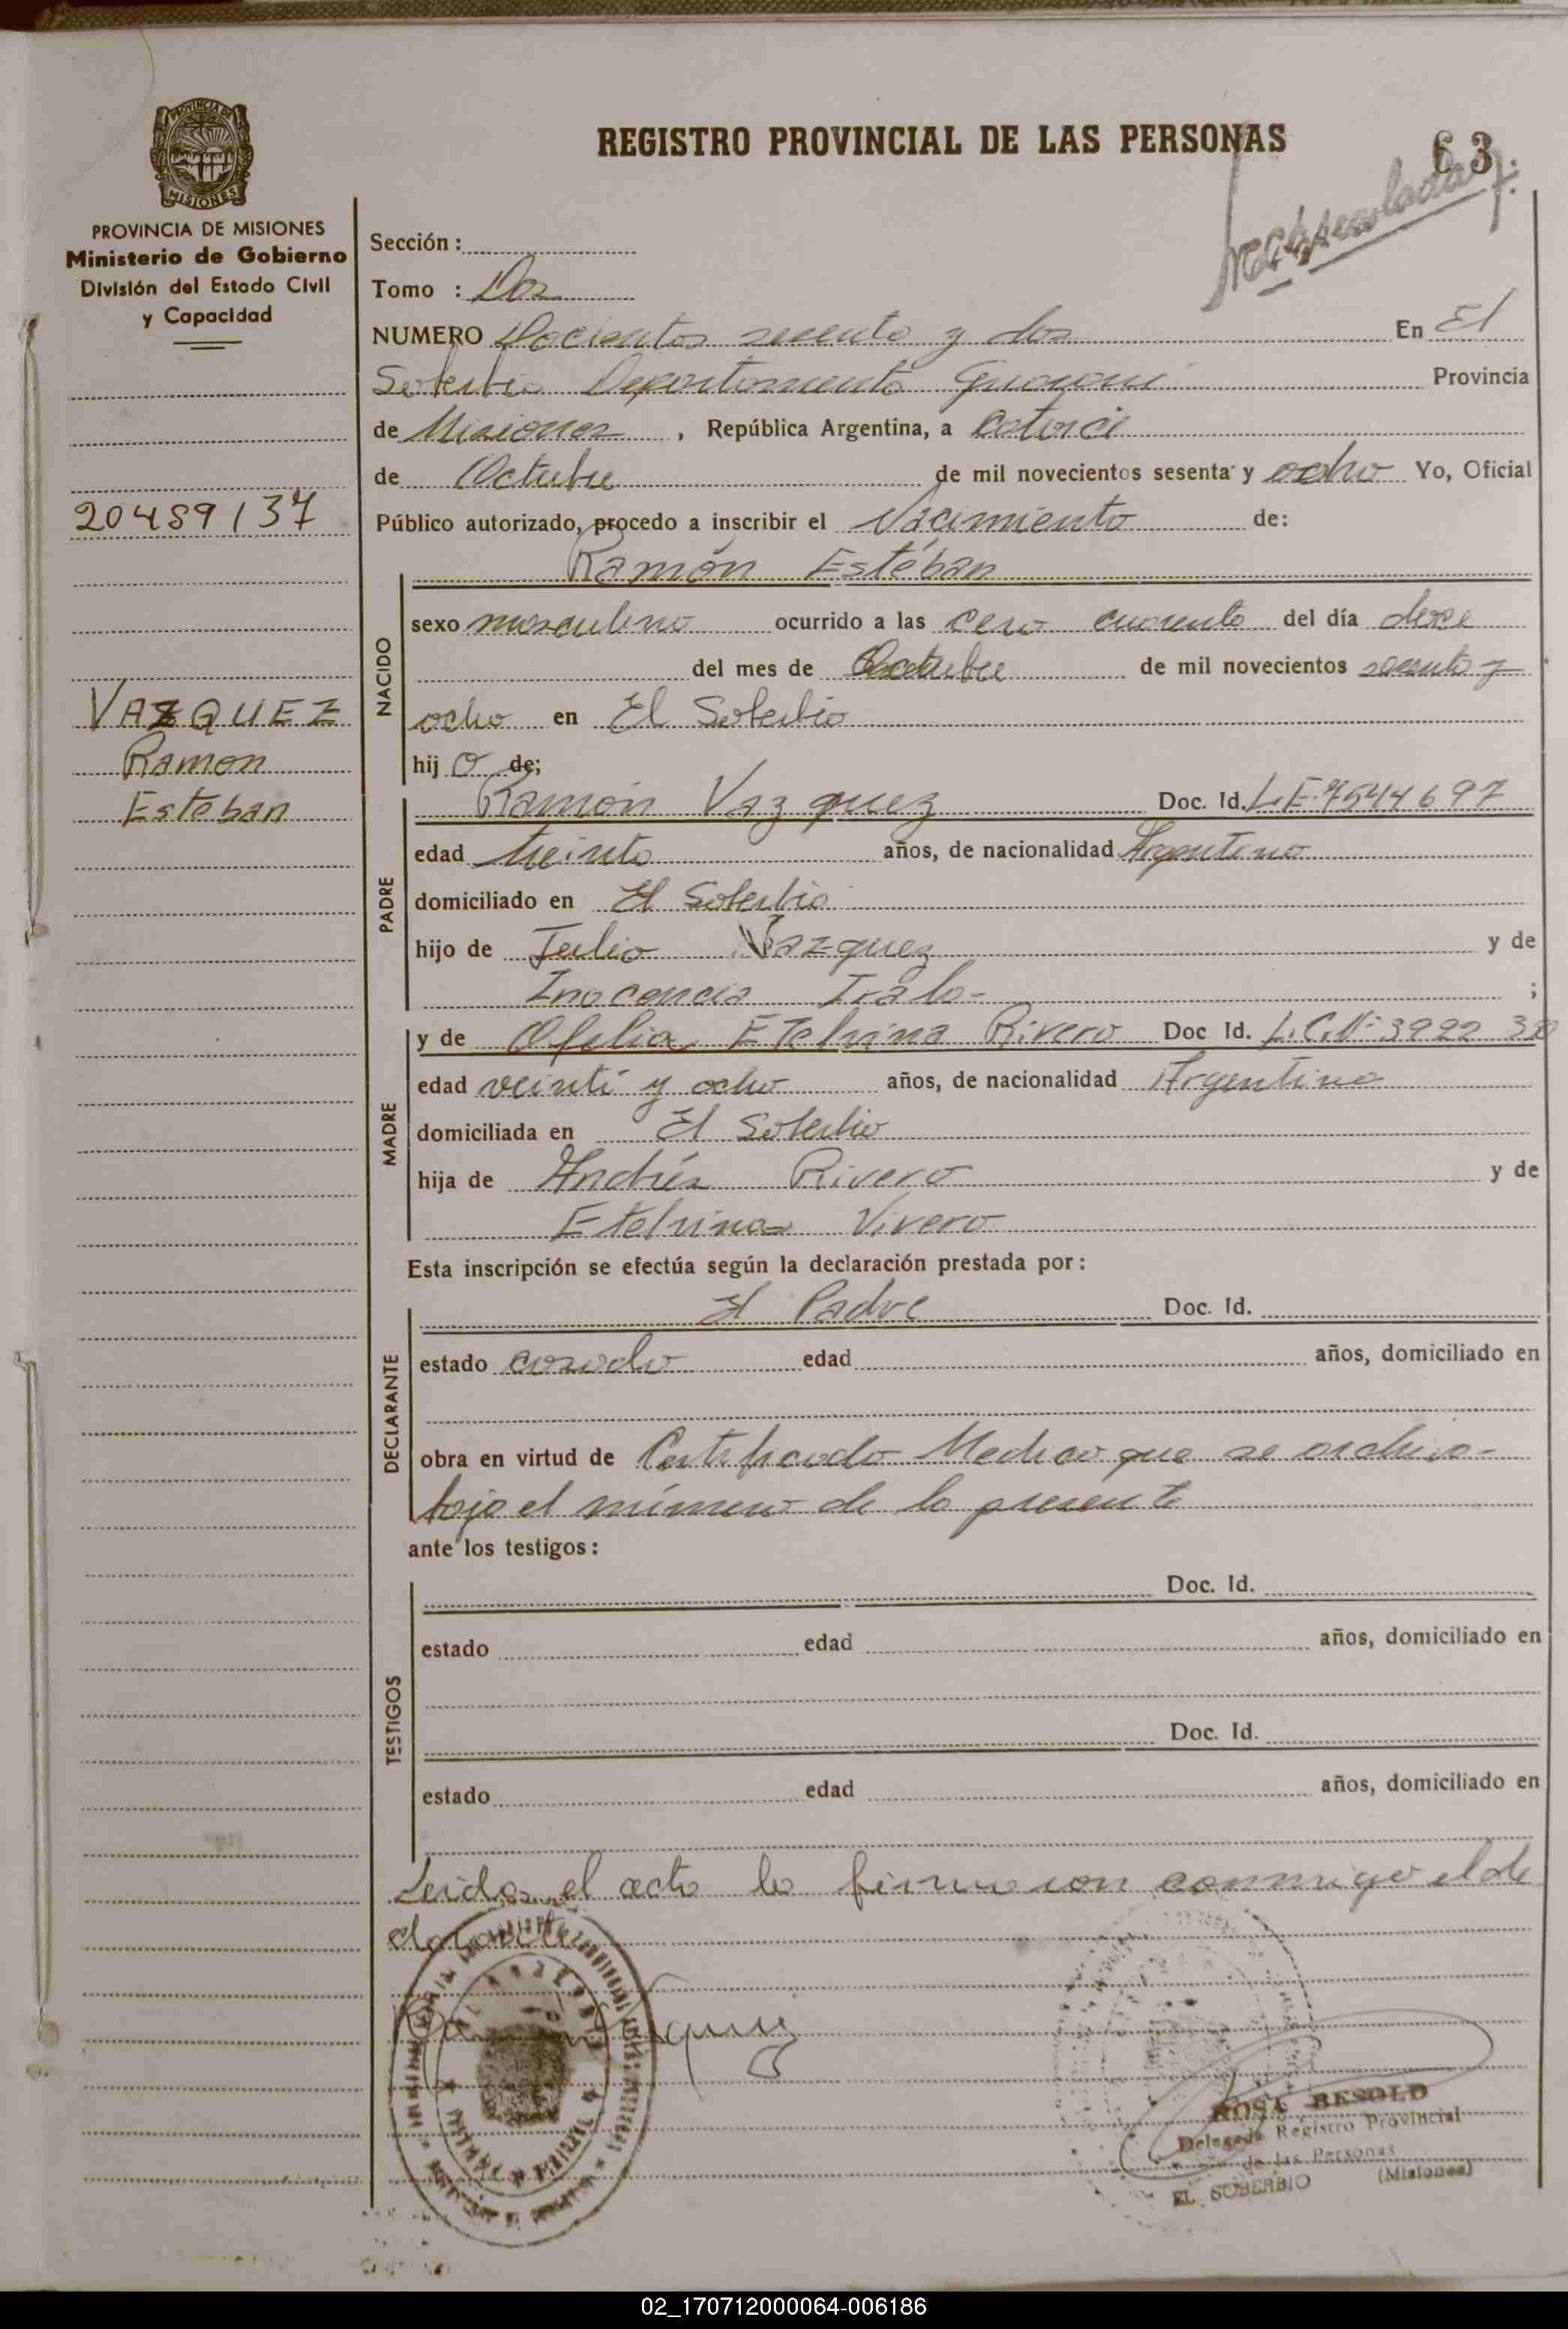 PROVINCIA DE
MISIONES
REGISTRO PROVINCIAL DE LAS PERSONAS
63
PROVINCIA DE MISIONES
Ministerio de Gobierno
División del Estado Civil
y Capacidad
20489137
VAZQUEZ
Ramon
Esteban
Sección :
Tomo : Dos
NUMERO Docientos secenta y dos En El
Soberbio Departamento Guarani Provincia
de Misiones , República Argentina, a Catorce
de Octubre de mil novecientos sesenta y ocho Yo, Oficial
Público autorizado, procedo a inscribir el Nacimiento de:
Ramón Estéban
NACIDO
sexo masculino ocurrido a las cero cuarenta del día doce
del mes de Octubre de mil novecientos secenta y
ocho en El Soberbio
hij o de;
PADRE
Ramón Vazquez Doc. Id. L.E. 7544697
edad treinta años, de nacionalidad Argentino
domiciliado en El Soberbio
hijo de Julio Vazquez y de
Inocencia Irala- ;
MADRE
y de Ofelia Etelvina Rivero Doc Id. L.C.Nº 3922 330
edad veinti y ocho años, de nacionalidad Argentina
domiciliada en El Soberbio
hija de Andrés Rivero y de
Etelvina Vivero
Esta inscripción se efectúa según la declaración prestada por :
DECLARANTE
El Padre Doc. Id.
estado casado edad años, domiciliado en
obra en virtud de Certificado Medico que se archiva-
bajo el número de la presente
ante los testigos :
TESTIGOS
Doc. Id.
estado edad años, domiciliado en
Doc. Id.
estado edad años, domiciliado en
Leida el acta la firma con conmigo el de
clarante
ROSA BESOLD
Delegada Registro Provincial
de las Personas
EL SOBERBIO (Misiones)
02_170712000064-006186